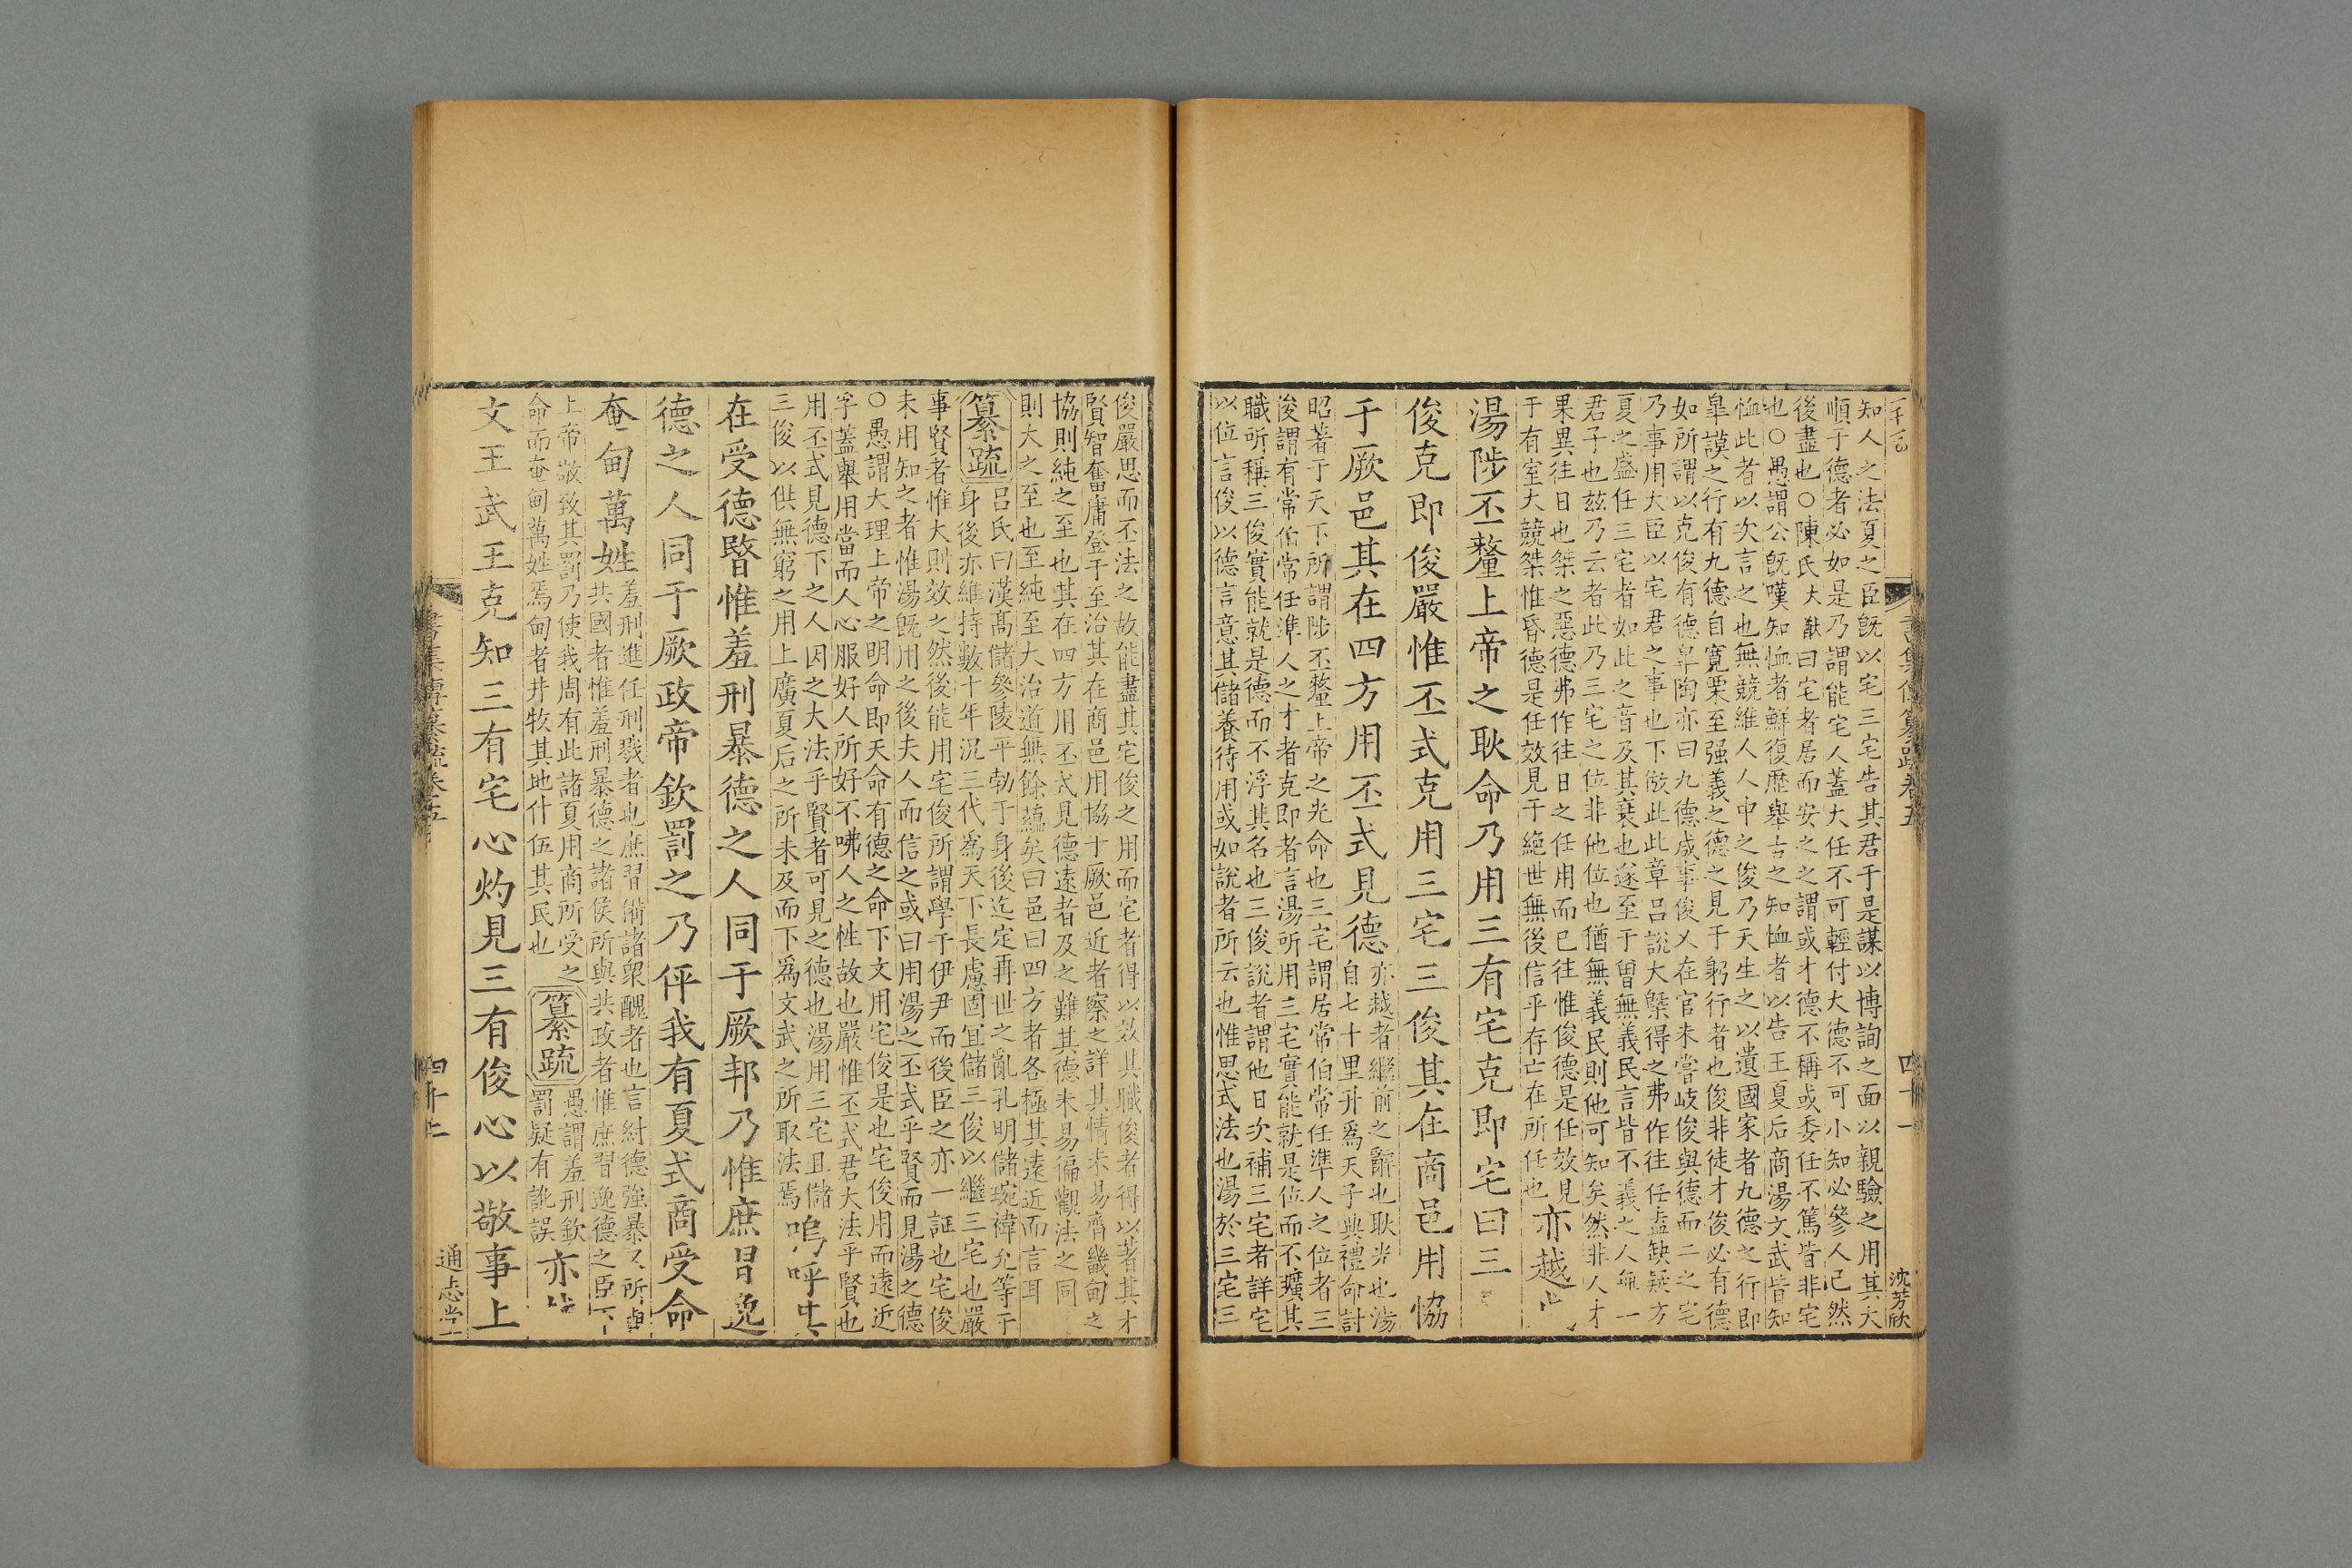 知人之法夏之臣既以宅三宅告其君于是謀以博詢之面以親驗之用其大
順于德者必如是乃謂能宅人蓋大任不可輕付大德不可小知必參人己然
後盡也○陳氏大猷曰宅者居而安之之謂或才德不稱或委任不篤皆非宅
也○愚謂公既嘆知恤者鮮復歷舉古之知恤者以告王夏后商湯文武皆知
恤此者以次言之也無競維人人中之俊乃天生之以遺國家者九德之行即
臯謨之行有九德自寬栗至强義之德之見于躬行者也俊非徒才俊必有德
如所謂以克俊有德臯陶亦曰九德咸事俊乂在官未嘗岐俊與德而二之宅
乃事用大臣以宅君之事也下倣此此章呂說大槩得之弗作往任盍缺疑方
夏之盛任三宅者如此之音及其衰也遂至于曾無義民言皆不義之人無一
君子也兹乃云者此乃三宅之位非他位也猶無義民則他可知矣然非人才
果異往日也桀之惡德弗作往日之任用而已往惟俊德是任效見
于有室大競桀惟昏德是任效見于絶世無後信乎存亡在所任也
亦越
湯陟丕釐上帝之耿命乃用三有宅克即宅曰三
俊克即俊嚴惟丕式克用三宅三俊其在商邑用協
于厥邑其在四方用丕式見德
亦越者繼前之辭也耿光也湯
自七十里升爲天子典禮命討
昭著于天下所謂陟丕釐上帝之光命也三宅謂居常伯常任準人之位者三
俊謂有常伯常任準人之才者克即者言湯所用三宅實能就是位而不曠其
職所稱三俊實能就是德而不浮其名也三俊說者謂他日次補三宅者詳宅
以位言俊以德言意其儲養待用或如說者所云也惟思式法也湯於三宅三
沈芳欣
四十一
俊嚴思而丕法之故能盡其宅俊之用而宅者得以效其職俊者得以著其才
賢智奮庸登于至治其在商邑用協于厥邑近者察之詳其情未易齊畿甸之
協則純之至也其在四方用丕式見德遠者及之難其德未易徧觀法之同
則大之至也至純至大治道無餘蘊矣曰邑曰四方者各極其遠近而言耳
纂疏
呂氏曰漢髙儲參陵平勃于身後迄定再世之亂孔明儲琬禕允等于
身後亦維持數十年況三代爲天下長慮固宜儲三俊以繼三宅也嚴
事賢者惟大則效之然後能用宅俊所謂學于伊尹而後臣之亦一証也宅俊
未用知之者惟湯既用之後夫人而信之或曰用湯之丕式乎賢而見湯之德
○愚謂大理上帝之明命即天命有德之命下文用宅俊是也宅俊用而遠近
孚蓋舉用當而人心服好人所好不咈人之性故也嚴惟丕式君大法乎賢也
用丕式見德下之人因之大法乎賢者可見之德也湯用三宅且儲
三俊以供無窮之用上廣夏后之所未及而下爲文武之所取法焉
嗚呼其
在受德暋惟羞刑暴德之人同于厥邦乃惟庶習逸
德之人同于厥政帝欽罰之乃伻我有夏式商受命
奄甸萬姓
羞刑進任刑戮者也庶習備諸衆醜者也言紂德強暴又所與
共國者惟羞刑暴德之諸侯所與共政者惟庶習逸德之臣下
上帝敬致其罰乃使我周有此諸夏用商所受之
命而奄甸萬姓焉甸者井牧其地什伍其民也
纂疏
愚謂羞刑欽
罰疑有訛誤
亦越
文王武王克知三有宅心灼見三有俊心以敬事上
書集傳纂疏卷五
四十二
通志堂